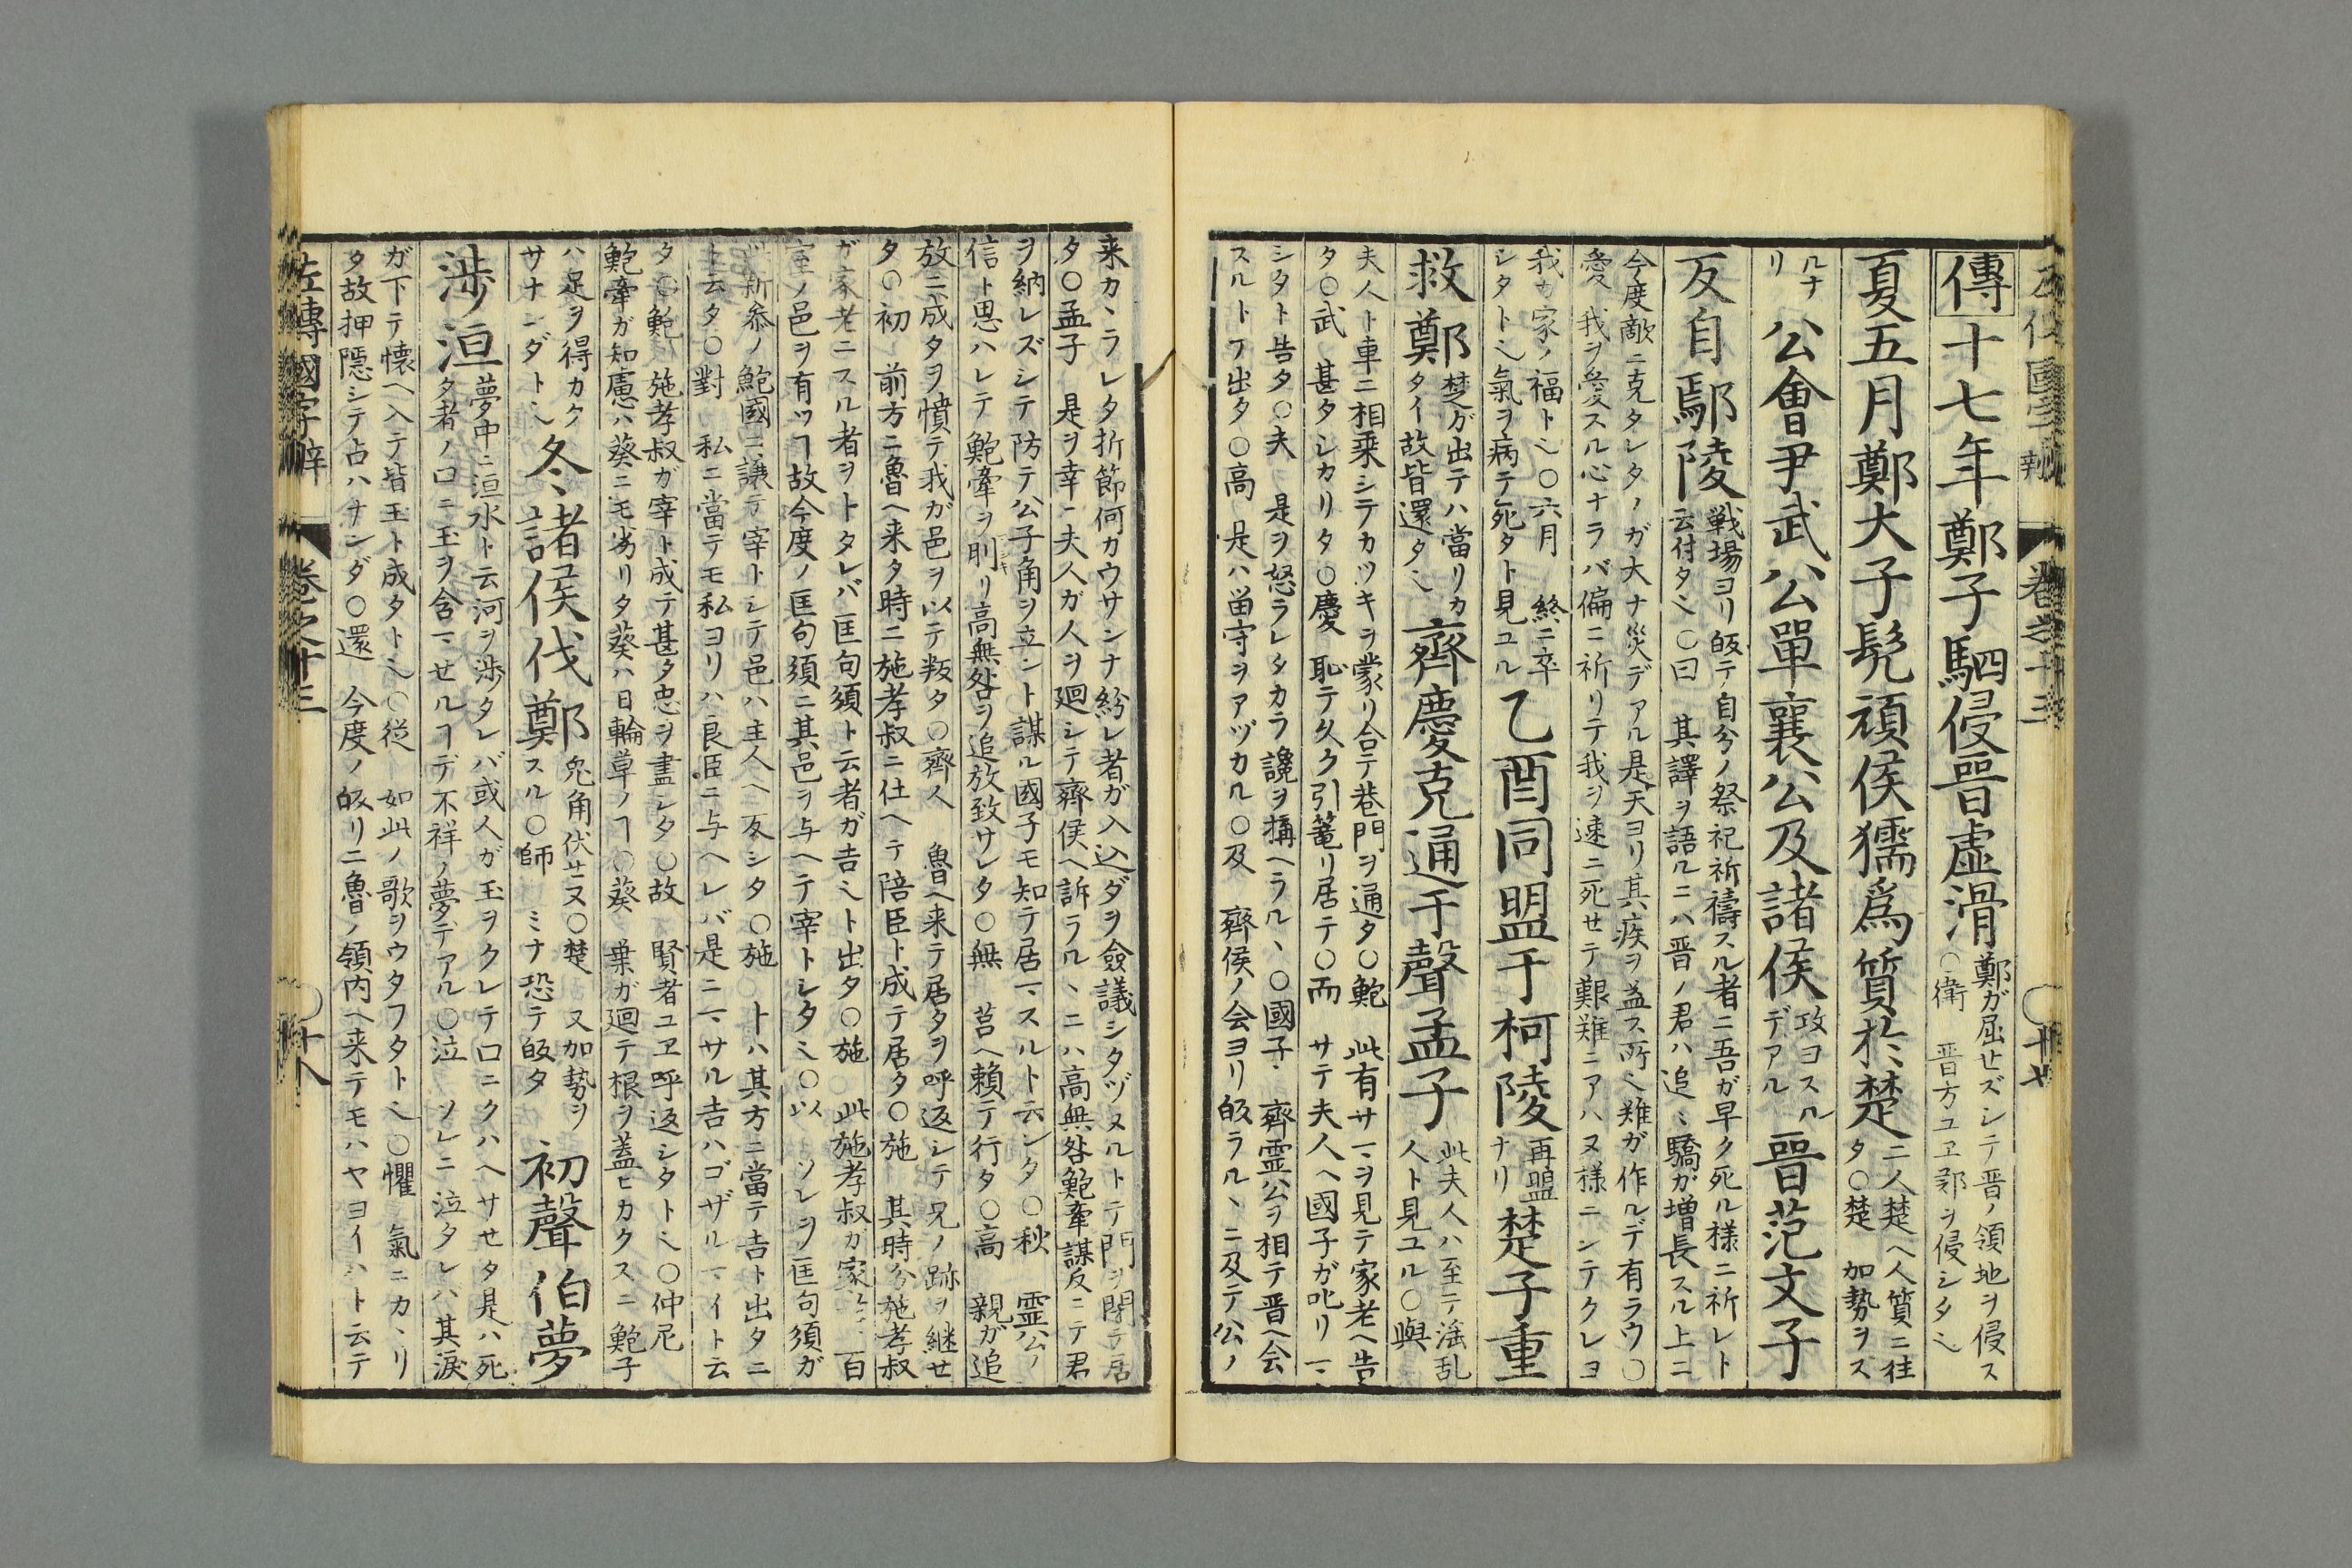 傳十七年鄭子駟侵晋虚滑
鄭ガ屈セズシテ晋ノ領地ヲ侵ス
○衛 晋方ユヱ鄭ヲ侵シタ
夏五月鄭大子髡頑侯獳爲質於楚
二人楚ヘ人質ニ往
タ○楚 加勢ヲス
ルナ
リ
公會尹武公單襄公及諸侯
攻ヨスル
デアル
晋范文子
反自鄢陵
戦場ヨリ皈テ自分ノ祭祀祈禱スル者ニ吾ガ早ク死ル様ニ祈レト
云付タ ○曰 其譯ヲ語ルニハ晋ノ君ハ追々驕ガ増長スル上ニ
今度敵ニ克タレタノガ大ナ災デアル是天ヨリ其疾ヲ益ス所 難ガ作ルデ有ラウ○
愛 我ヲ愛スル心ナラバ偏ニ祈リテ我ヲ速ニ死セテ艱難ニアハヌ様ニシテクレヨ
我カ家ノ福ト ○六月 終ニ卒
シタト 氣ヲ病テ死タト見ユル
乙酉同盟于柯陵
再盟
ナリ
楚子重
救鄭
楚ガ出テハ當リカ
タイ故皆還タ
齊慶克通于聲孟子
此夫人ハ至テ淫乱
人ト見ユル○與
夫人ト車ニ相乗シテカツキヲ蒙リ合テ巷門ヲ通タ○鮑 此有サマヲ見テ家老ヘ告
タ○武 甚タシカリタ○慶 恥テ久ク引篭リ居テ○而 サテ夫人ヘ國子ガ叱リマ
シタト告タ○夫 是ヲ怒ラレタカラ讒ヲ搆ヘラル丶○國子 齊霊公ヲ相テ晋ヘ会
スルトテ出タ○高 是ハ畄守ヲアヅカル○及 齊侯ノ会ヨリ皈ラル丶ニ及テ公ノ
来カ丶ラレタ折節何カウサンナ紛レ者ガ入込ダヲ僉議シタヅヌルトテ門ヲ閉テ居
タ○孟子 是ヲ幸ト夫人ガ人ヲ廻シテ齊侯ヘ訴ラル丶ニハ高無咎鮑牽謀反ニテ君
ヲ納レズシテ防テ公子角ヲ立ント謀ル國子モ知テ居マスルト云シタ○秋 霊公ノ
信ト思ハレテ鮑牽ヲ刖リ高無咎ヲ追放致サレタ○無 莒ヘ頼テ行タ○高 親ガ追
放ニ成タヲ憤テ我ガ邑ヲ以テ叛タ○齊人 魯ヘ来テ居タヲ呼返シテ兄ノ跡ヲ継セ
タ○初 前方ニ魯ヘ来タ時ニ施孝叔ニ仕ヘテ陪臣ト成テ居タ○施 其時分施孝叔
ガ家老ニスル者ヲトタレバ匡句須ト云者ガ吉 ト出タ○施 此施孝叔ガ家 百
室ノ邑ヲ有ツヿ故今度ノ匡句須ニ其邑ヲ与ヘテ宰トシタ ○以 ソレヲ匡句須ガ
新参ノ鮑國ニ譲テ宰トシテ邑ハ主人ヘ反シタ○施 トハ其方ニ當テ吉ト出タニ
ト云タ○對 私ニ當テモ私ヨリハ良臣ニ与ヘレバ是ニマサル吉ハゴザルマイト云
タ○鮑 施孝叔ガ宰ト成テ甚タ忠ヲ盡シタ○故 賢者ユヱ呼返シタト ○仲尼
鮑牽ガ知慮ハ葵ニモ劣リタ葵ハ日輪草ノヿ○葵 葉ガ廻テ根ヲ蓋ヒカクスニ鮑子
ハ足ヲ得カク
サナンダト
冬諸侯伐鄭
兔角伏セヌ○楚 又加勢ヲ
スル○師 ミナ恐テ皈タ
初聲伯夢
渉洹
夢中ニ洹水ト云河ヲ渉タレバ或人ガ玉ヲクレテ口ニクハヘサセタ是ハ死
タ者ノ口ニ玉ヲ含マセルヿデ不祥ノ夢デアル○泣 ソレニ泣タレハ其涙
ガ下テ懐ヘ入テ皆玉ト成タト ○従 如此ノ歌ヲウタフタト ○懼 氣ニカ丶リ
タ故押隠シテ占ハナンダ○還 今度ノ皈リニ魯ノ領内ヘ来テモハヤヨイハト云テ
左傳國字辯 卷之十三 十八